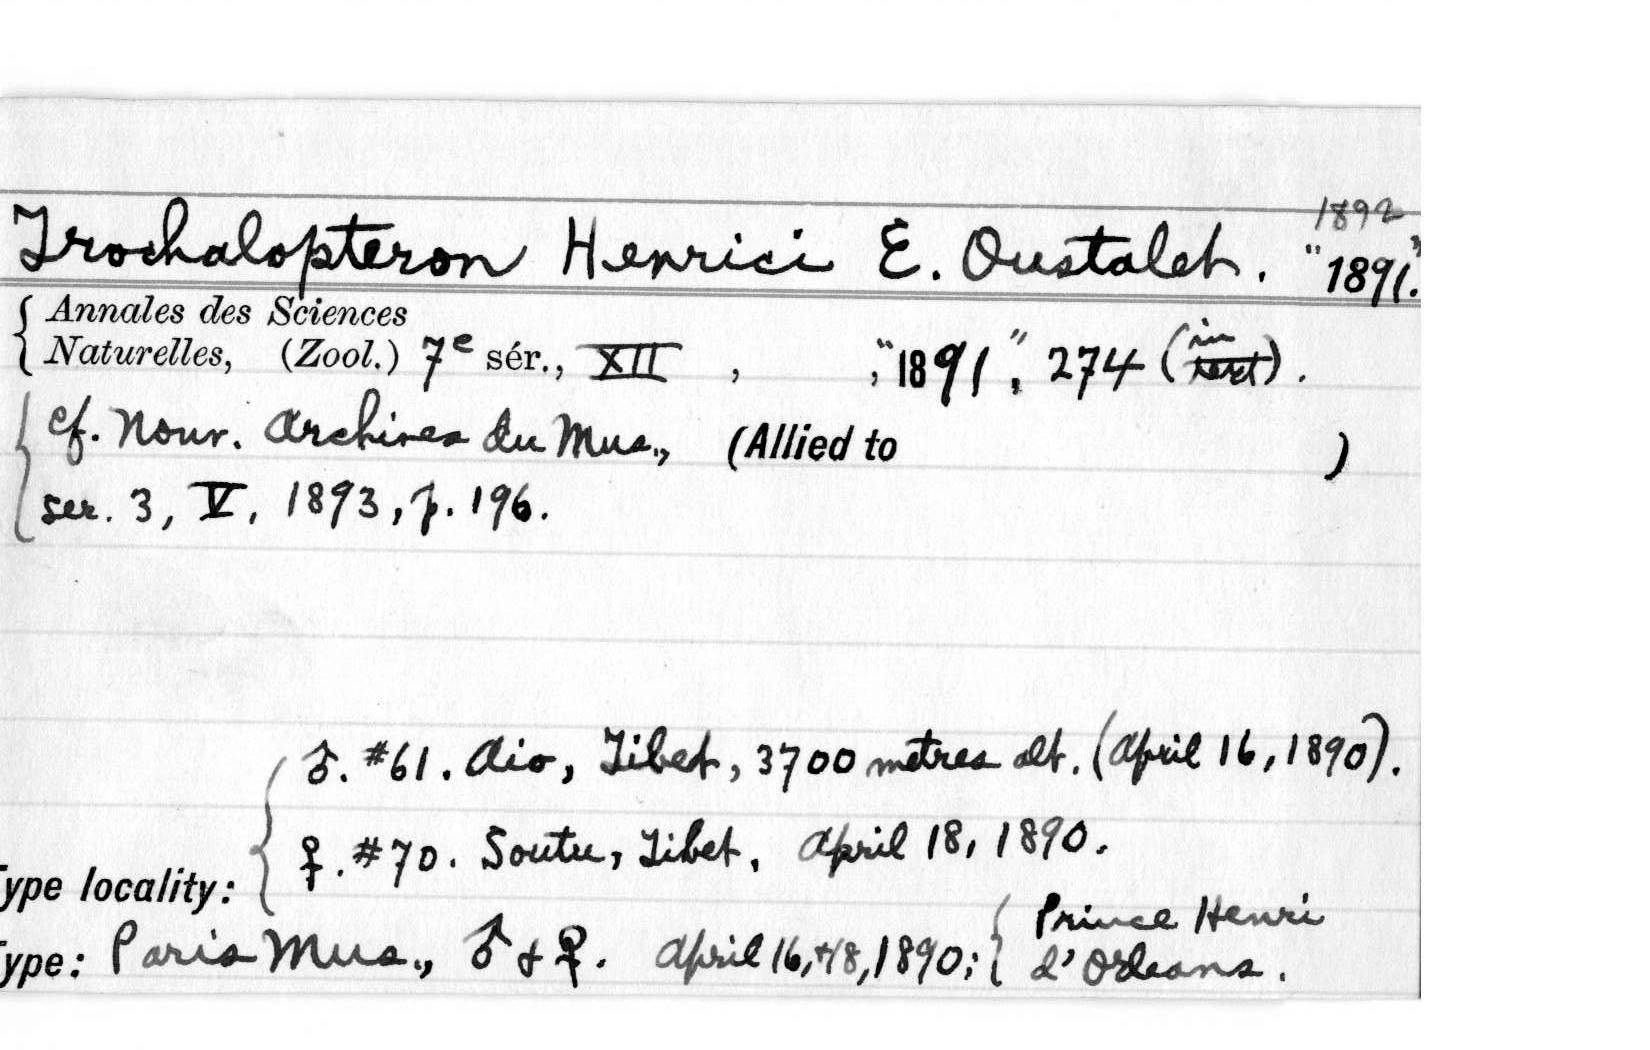 1892
Trochalopteron Henrici E. Oustalet. "1891."
Annales des Sciences
Naturelles, (Zool.) 7e sér., XII , , "1891", 274 (in text).
cf. Nouv. Archives du Mus., (Allied to )
ser. 3, V, 1893, p. 196.
♂. #61. Aio, Tibet, 3700 metres alt. (April 16, 1890).
♀. #70. Soutu, Tibet, April 18, 1890.
ype locality:
ype: Paris Mus., ♂ & ♀. April 16, + 18, 1890; Prince Henri
d'Orleans.